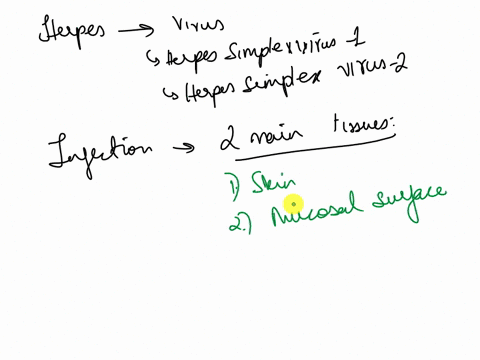 Herpes → Virus
↳ Herpes Simplex virus-1
↳ Herpes Simplex virus-2
Infection → 2 main tissues:
1) Skin
2.) Mucosal surface